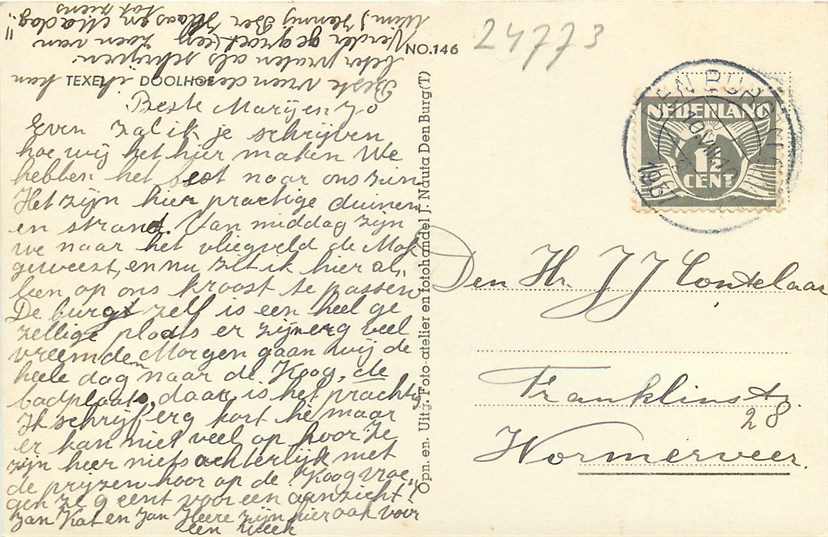 NO. 146
24773
TEXEL DOOLHOF
Beste vrienden ik kan
beter praten als schrijven
Verder gegroet een zoen van
Wim, Jenny Ber Klaas en Madag"
tot ziens
Beste Marij en Jo
Even zal ik je schrijven
hoe wij het hier maken We
hebben het best naar ons zin
Het zijn hier prachtige duinen
en strand. Van middag zijn
we naar het vliegveld de Mok
geweest, en nu zit ik hier al"
leen op ons kroost te passen
De burgt zelf is een heel ge
zellige plaats er zijn erg veel
vreemde Morgen gaan wij de
heele dag naar de Koog, de
badplaats, daar is het prachtig
Ik schrijf erg kort he maar
er kan niet veel op hoor Ze
zijn hier niets achterlijk met
de pryzen hoor op de Koog vroe"
gen ze 9 cent voor een aanzicht!
Jan Kat en Jan Heere zijn hier ook voor
een week
Opn. en Uitg. Foto-atelier en fotohandel J. Nauta Den Burg (T)
DEN BURG
1937
NEDERLAND
1½
CENT
Den Hr. J J Contelaar
Franklinstr.
28
Wormerveer.